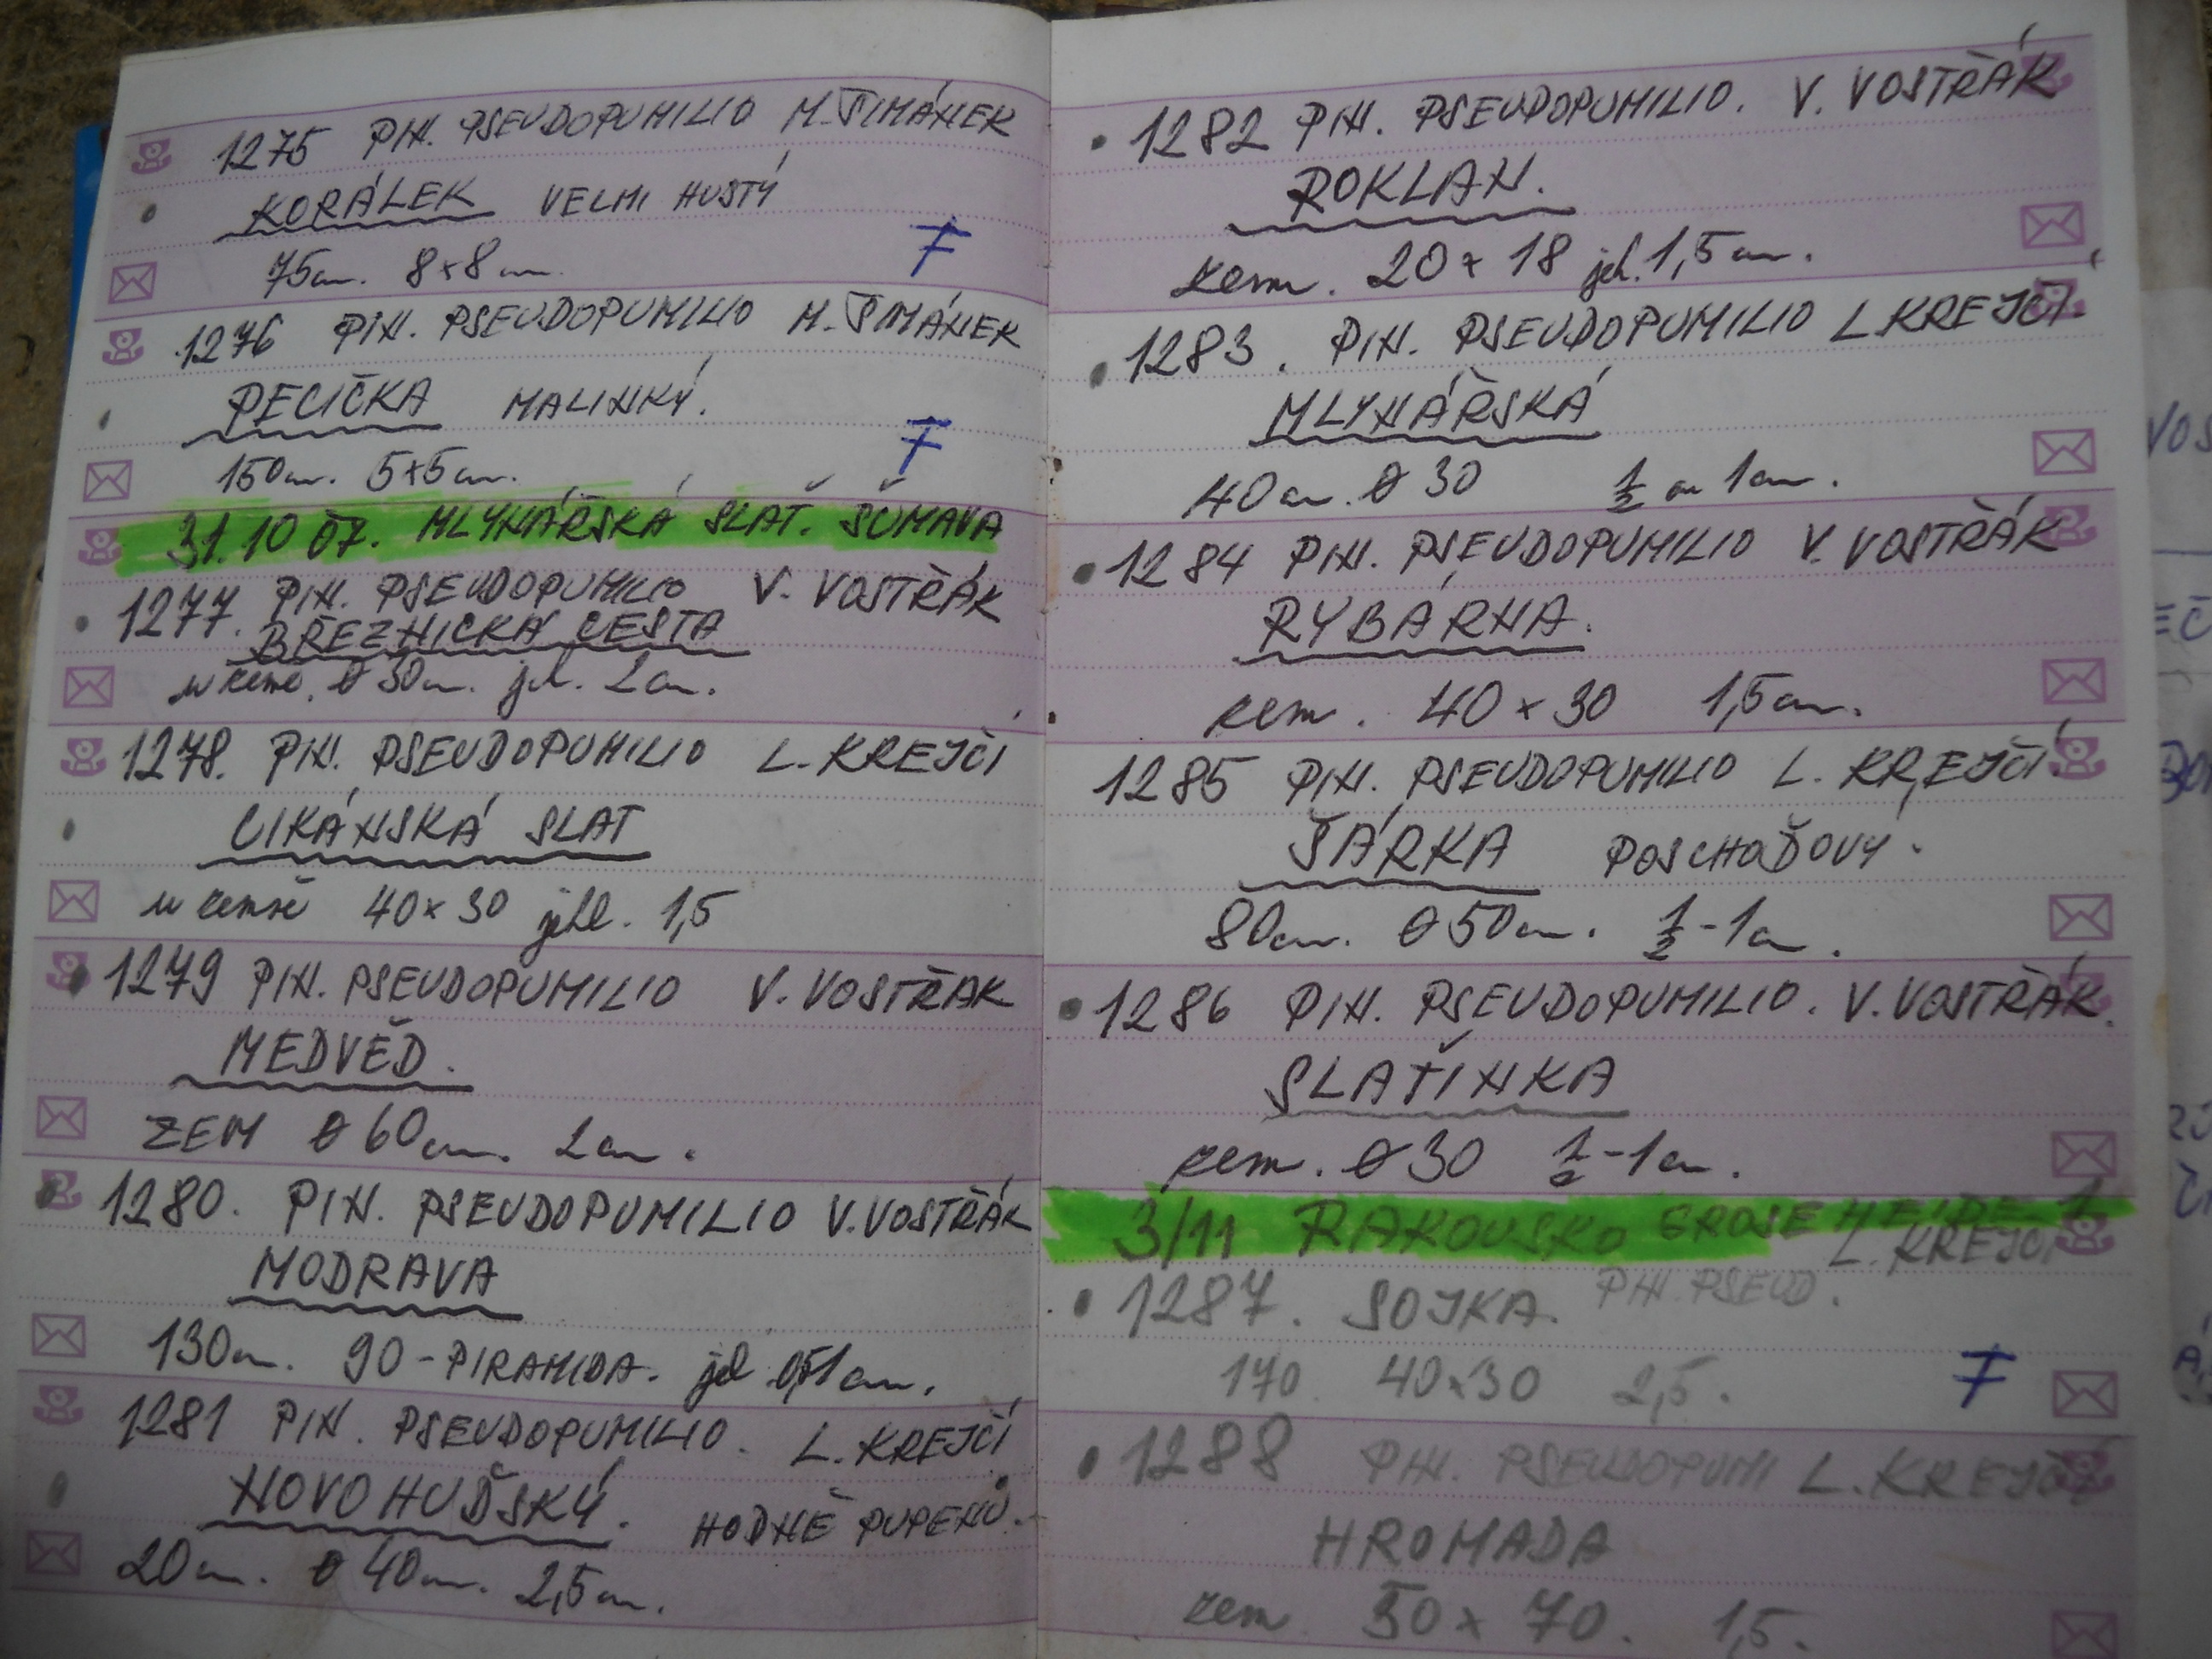 1275 PIN. PSEUDOPUMILIO M. ŠIMÁNEK
KORÁLEK VELMI HUSTÝ
75cm. 8x8cm.
F
1276 PIN. PSEUDOPUMILIO M. ŠIMÁNEK
PECIČKA MALINKÝ.
150cm. 5x5cm.
F
31.10 07. MLYNÁŘSKÁ SLAŤ. ŠUMAVA
1277. PIN. PSEUDOPUMILIO V. VOSTŘÁK
BŘEZNICKÁ CESTA
u země. ø 30cm. jeh. 2cm.
1278. PIN. PSEUDOPUMILIO L. KREJČÍ
CIKÁNSKÁ SLAT
u země 40x30 jehl. 1,5
1279 PIN. PSEUDOPUMILIO V. VOSTŘAK
MEDVĚD.
ZEM ø 60cm. 2cm.
1280. PIN. PSEUDOPUMILIO V. VOSTŘÁK
MODRAVA
130cm. 90-PIRAMIDA. jehl 1cm.
1281 PIN. PSEUDOPUMILIO. L. KREJČÍ
NOVOHUĎSKÝ. HODNĚ PUPENŮ.
20cm. ø 40cm. 2,5cm.
1282 PIN. PSEUDOPUMILIO. V. VOSTŘÁK
ROKLAN.
zem. 20x18 jeh. 1,5cm.
1283. PIN. PSEUDOPUMILIO L. KREJČÍ
MLYNÁŘSKÁ
40cm. ø 30 1/2 1cm.
1284 PIN. PSEUDOPUMILIO V. VOSTŘÁK
RYBÁRNA.
zem. 40x30 1,5cm.
1285 PIN. PSEUDOPUMILIO L. KREJČÍ.
ŠÁRKA POSCHOĎOVÝ.
80cm. ø 50cm. 1/2-1cm.
1286 PIN. PSEUDOPUMILIO. V. VOSTŘÁK.
SLATÍNKA
zem. ø 30 1/2-1cm.
3/11 RAKOUSKO GROSE HEIDE 1
L. KREJČÍ
1287. SOJKA. PIN. PSEUD.
170 40x30 2,5.
F
1288 PIN. PSEUDOPUMI L. KREJČÍ
HROMADA
zem 50x70. 1,5.